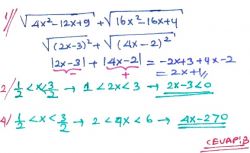 1/ √4x²-12x+9 + √16x²-16x+4
√(2x-3)² + √(4x-2)²
|2x-3| + |4x-2| = -2x+3+4x-2
- +
= 2x+1
2/ 1/2 < x < 3/2 → 1 < 2x < 3 → 2x-3<0
4/ 1/2 < x < 3/2 → 2 < 4x < 6 → 4x-2>0
(CEVAP:B